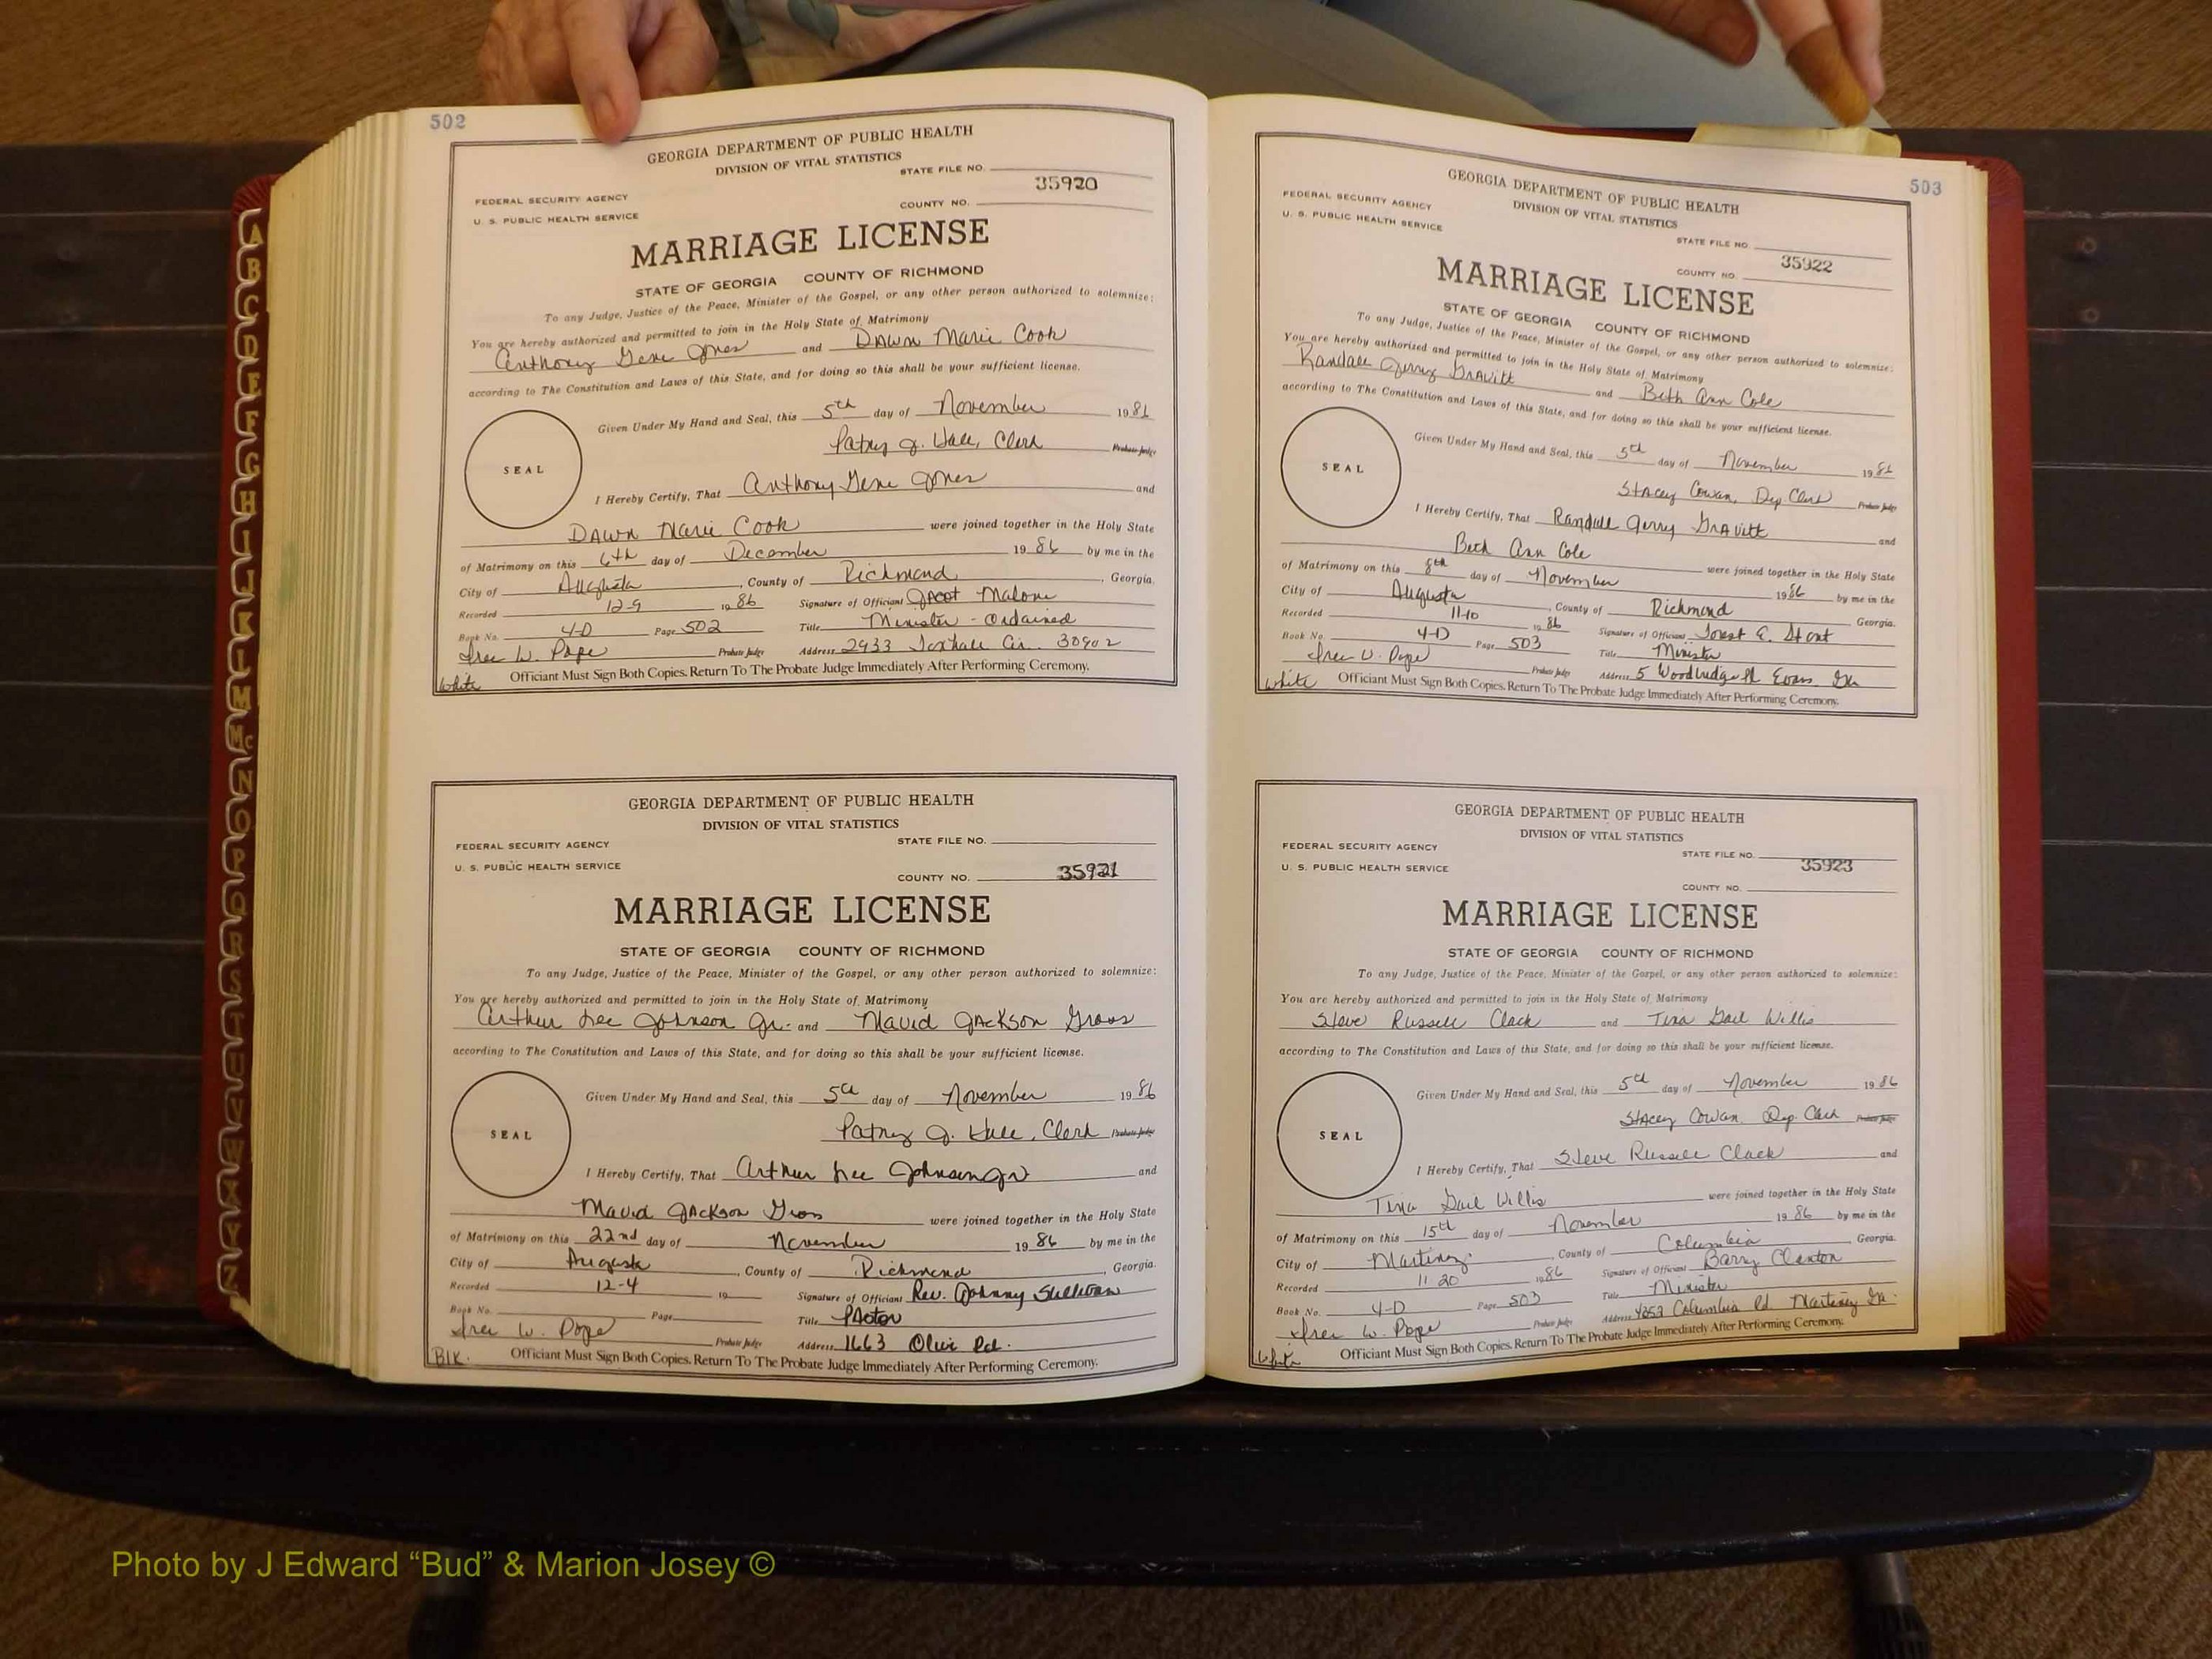 A
B
C
D
E
F
G
H
I
J
K
L
M
Mc
N
O
P
Q
R
S
T
U
V
W
X
Y
Z
502
GEORGIA DEPARTMENT OF PUBLIC HEALTH
DIVISION OF VITAL STATISTICS
STATE FILE NO.
35920
FEDERAL SECURITY AGENCY
U. S. PUBLIC HEALTH SERVICE
COUNTY NO.
MARRIAGE LICENSE
STATE OF GEORGIA COUNTY OF RICHMOND
To any Judge, Justice of the Peace, Minister of the Gospel, or any other person authorized to solemnize:
You are hereby authorized and permitted to join in the Holy State of Matrimony
Anthony Gene Jones and Dawn Marie Cook
according to The Constitution and Laws of this State, and for doing so this shall be your sufficient license.
Given Under My Hand and Seal, this 5th day of November 1986
Patsy J. Hall, Clerk Probate Judge
SEAL
I Hereby Certify, That Anthony Gene Jones and
Dawn Marie Cook were joined together in the Holy State
of Matrimony on this 6th day of December 1986 by me in the
City of Augusta, County of Richmond, Georgia.
Recorded 12-9 1986 Signature of Officiant Malone
Book No. 4-D Page 502 Title Minister - Ordained
W. Pope Probate Judge Address 2933 Cir. 30902
White Officiant Must Sign Both Copies. Return To The Probate Judge Immediately After Performing Ceremony.
GEORGIA DEPARTMENT OF PUBLIC HEALTH
DIVISION OF VITAL STATISTICS
FEDERAL SECURITY AGENCY
STATE FILE NO.
U. S. PUBLIC HEALTH SERVICE
COUNTY NO. 35921
MARRIAGE LICENSE
STATE OF GEORGIA COUNTY OF RICHMOND
To any Judge, Justice of the Peace, Minister of the Gospel, or any other person authorized to solemnize:
You are hereby authorized and permitted to join in the Holy State of Matrimony
Arthur Lee Johnson Jr. and Mavid Jackson Gross
according to The Constitution and Laws of this State, and for doing so this shall be your sufficient license.
Given Under My Hand and Seal, this 5th day of November 1986
Patsy J. Hall, Clerk Probate Judge
SEAL
I Hereby Certify, That Arthur Lee Johnson Jr and
Mavid Jackson Gross were joined together in the Holy State
of Matrimony on this 22nd day of November 1986 by me in the
City of Augusta, County of Richmond, Georgia.
Recorded 12-4 19 Signature of Officiant Rev. Johnny Sullivan
Book No. Page Title Pastor
W. Pope Probate Judge Address 1663 Olive Rd.
Blk. Officiant Must Sign Both Copies. Return To The Probate Judge Immediately After Performing Ceremony.
503
GEORGIA DEPARTMENT OF PUBLIC HEALTH
DIVISION OF VITAL STATISTICS
FEDERAL SECURITY AGENCY
U. S. PUBLIC HEALTH SERVICE
STATE FILE NO.
35922
COUNTY NO.
MARRIAGE LICENSE
STATE OF GEORGIA COUNTY OF RICHMOND
To any Judge, Justice of the Peace, Minister of the Gospel, or any other person authorized to solemnize:
You are hereby authorized and permitted to join in the Holy State of Matrimony
Randall Jerry Gravitt and Beth Ann Cole
according to The Constitution and Laws of this State, and for doing so this shall be your sufficient license.
Given Under My Hand and Seal, this 5th day of November 1986
Stacey Cowan, Dep. Clerk Probate Judge
SEAL
I Hereby Certify, That Randall Jerry Gravitt and
Beth Ann Cole were joined together in the Holy State
of Matrimony on this 8th day of November 1986 by me in the
City of Augusta, County of Richmond Georgia.
Recorded 11-10 1986 Signature of Officiant
Book No. 4-D Page 503 Title Minister
W. Pope Probate Judge Address 5 Woodbridge Pl Evans, Ga
White Officiant Must Sign Both Copies. Return To The Probate Judge Immediately After Performing Ceremony.
GEORGIA DEPARTMENT OF PUBLIC HEALTH
DIVISION OF VITAL STATISTICS
FEDERAL SECURITY AGENCY
STATE FILE NO.
U. S. PUBLIC HEALTH SERVICE
35923
COUNTY NO.
MARRIAGE LICENSE
STATE OF GEORGIA COUNTY OF RICHMOND
To any Judge, Justice of the Peace, Minister of the Gospel, or any other person authorized to solemnize:
You are hereby authorized and permitted to join in the Holy State of Matrimony
Steve Russell Clack and Tina Gail Willis
according to The Constitution and Laws of this State, and for doing so this shall be your sufficient license.
Given Under My Hand and Seal, this 5th day of November 1986
Stacey Cowan, Dep. Clerk Probate Judge
SEAL
I Hereby Certify, That Steve Russell Clack and
Tina Gail Willis were joined together in the Holy State
of Matrimony on this 15th day of November 1986 by me in the
City of Martinez, County of Columbia Georgia.
Recorded 11 20 1986 Signature of Officiant Barry Clanton
Book No. 4-D Page 503 Title Minister
W. Pope Probate Judge Address Columbia Rd Martinez Ga.
White Officiant Must Sign Both Copies. Return To The Probate Judge Immediately After Performing Ceremony.
Photo by J Edward “Bud” & Marion Josey ©